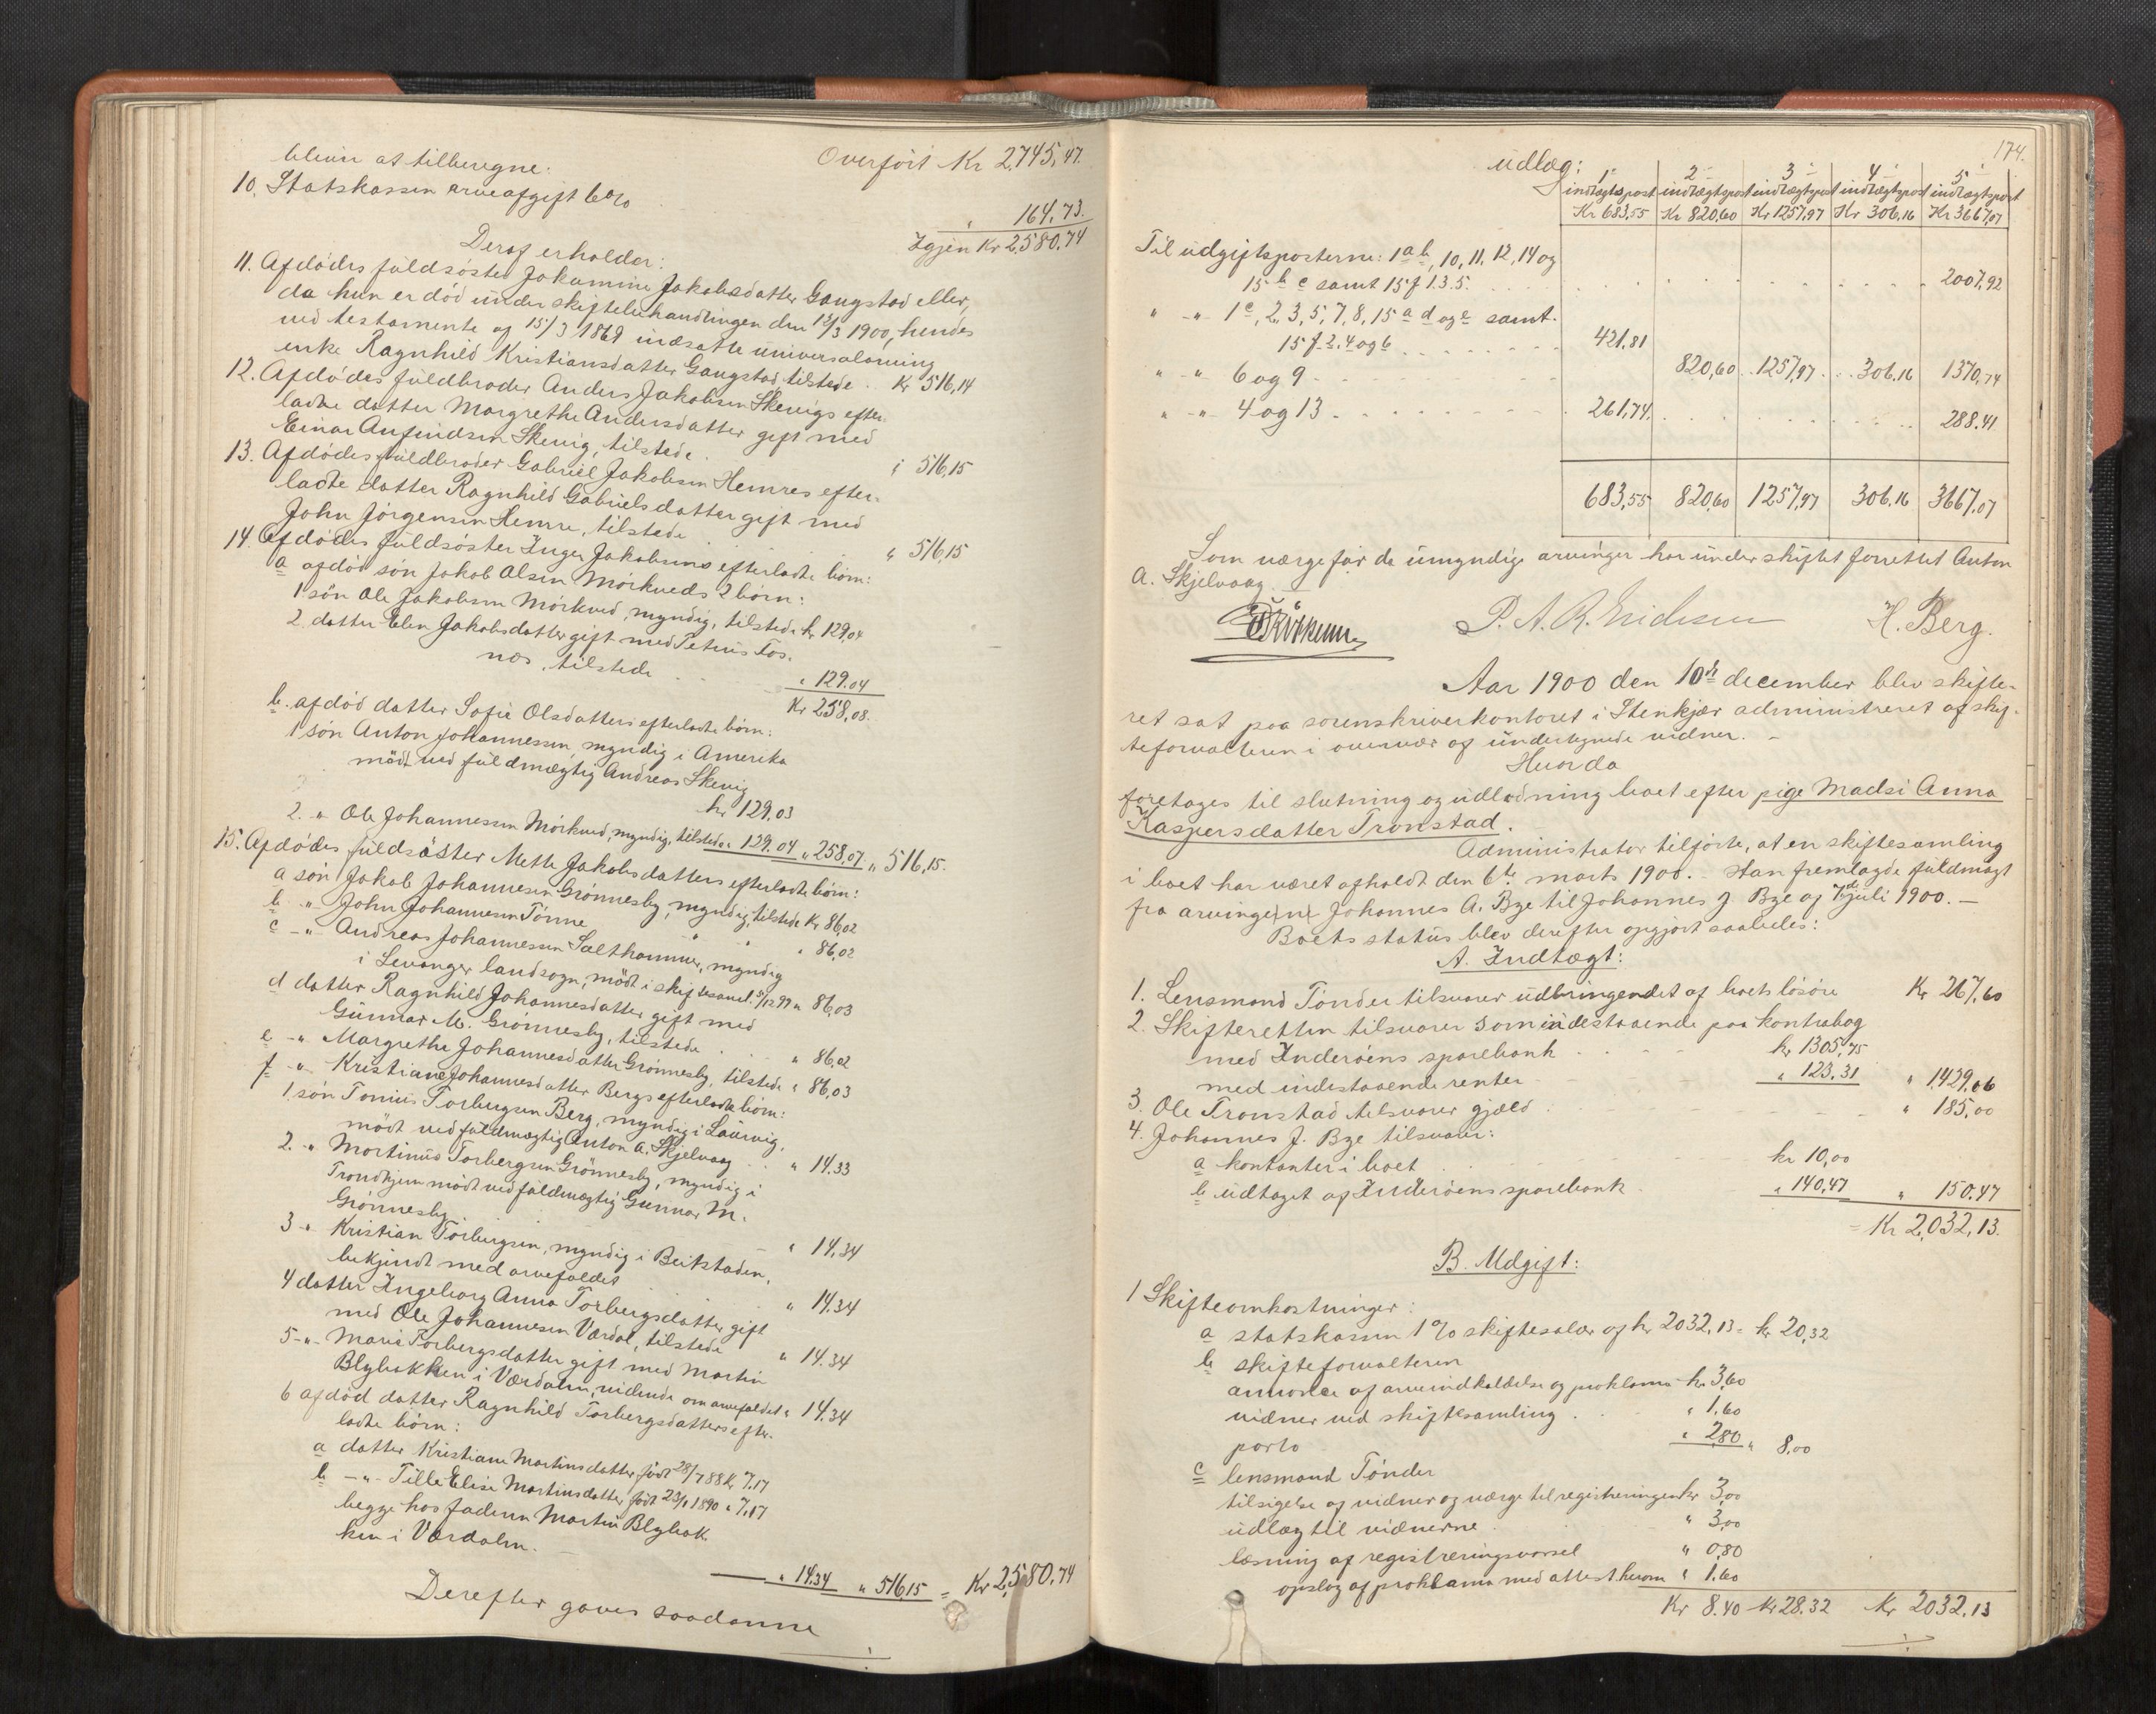 bliver at tilberegne: Overført Kr 2745,47.
10. Statskassen arveafgift 6% " 164,73.
Igjen Kr 2,580,74
Deraf erholder:
11. Afdødes fuldsøster Jokumine Jakobsdatter Gangstad eller,
da hun er död under skiftebehandlingen den 12/3 1900, hendes
ved testamente af 15/3 1869 indsatte universalarving
enke Ragnhild Kristiansdatter Gangstad, tilstede . Kr 516,14
12. Afdødes fuldbroder Anders Jakobsen Skevigs efter-
ladte datter Margrethe Andersdatter gift med
Einar Anfindsen Skevig, tilstede . " 516,15
13. Afdødes fuldbroder Gabriel Jakobsen Hemres efter-
ladte datter Ragnhild Gabrielsdatter gift med
John Jörgensen Hemre, tilstede . " 516,15
14. Afdødes fuldsøster Inger Jakobsens efterladte börn:
a afdöd sön Jakob Olsen Mörkveds 2 börn:
1 sön Ole Jakobsen Mörkved, myndig, tilstede kr 129,04
2. datter Elen Jakobsdatter gift med Petrus Fos-
næs, tilstede " 129.04
Kr 258,08.
b. afdöd datter Sofie Olsdatters efterladte börn:
1 sön Anton Johannessen, myndig i Amerika
mödt ved fuldmægtig Andreas Skevig
kr 129,03
2. " Ole Johannessen Mörkved, myndig, tilstede " 129.04 " 258,07 " 516,15.
15. Afdødes fuldsöster Mette Jakobsdatters efterladte börn:
a sön Jakob Johannesen Grönnesby, myndig, tilstede Kr 86,02
b " John Johannesen Tönne " " " 86,02
c -" Andreas Johannessen Salthammer, myndig
i Levanger landsogn, mödt i skiftesaml. 5/12 99 " 86,03
d datter Ragnhild Johannesdatter gift med
Gunnar M. Grönnesby, tilstede . . . " 86,02
e -" Margrethe Johannesdatter Grönnesby, tilstede " 86,03
f -" Kristiane Johannesdatter Bergs efterladte börn:
1. sön Tonius Torbergsen Berg, myndig i Laurvig,
mödt ved fuldmægtig Anton A. Skjelvaag . . " 14.33
2. -" Martinus Torbergsen Grönnesby, myndig i
Trondhjem mödt ved fuldmægtig Gunnar M.
Grönnesby . " 14,34
3 -" Kristian Torbergsen, myndig i Beitstaden,
bekjendt med arvefaldet " 14.34
4 datter Ingeborg Anna Torbergsdatter gift
med Ole Johannesen Værdal, tilstede " 14.34
5 -"- Maria Torbergsdatter gift med Martin
Blybakken i Værdalen, vidende om arvefaldet " 14.34
6 afdöd datter Ragnhild Torbergsdatters efter-
ladte börn:
a datter Kristiane Martinsdatter, födt 28/7 88 Kr 7.17
b -"- Tille Elise Martinsdatter, födt 23/1 1890 " 7.17
begge hos faderen Martin Blybak-
ken i Værdalen.
" 14.34 " 516,15 = Kr 2,580.74
Derefter gaves saadanne
174.
udlæg:
1 2 3 4 5
indtægtspost indtægtspost indtægtspost indtægtspost indtægtspost
Kr 683,55 Kr 820,60 Kr 1257,97 Kr 306,16 Kr 3667,07
Til udgiftsposterne: 1 a b, 10, 11, 12, 14 og
15 b c samt 15 f 1.3.5. 2007,92
" -"- 1 c, 2, 3, 5, 7, 8, 15 a d og e samt
15 f. 2. 4 og 6 421,81
" -"- 6 og 9 820,60 1257,97 306.16 1370,74
" -"- 4 og 13 261,74. 288.41
683,55 820,60 1257,97 306.16 3667.07
Som værge for de umyndige arvinger har under skiftet forrettet Anton
A. Skjelvaag.
H. Berg.
Aar 1900 den 10de december blev skifte-
ret sat paa sorenskriverkontoret i Stenkjær administreret af skif-
teforvalteren i overvær af undertegnede vidner. -
Hvorda
foretages til slutning og udlodning boet efter pige Madsi Anna
Kaspersdatter Tronstad.
Administrator tilförte, at en skiftesamling
i boet har været afholdt den 6te marts 1900. - Han fremlagde fuldmagt
fra arvingen Johannes A. Bye til Johannes J. Bye af 7de juli 1900. -
Boets status blev derefter opgjort saaledes:
A. Indtægt:
1. Lensmand Tönder tilsvarer udbringendet af boets lösöre Kr 267,60
2. Skifteretten tilsvarer som indestaaende paa kontrabog
med Inderöens sparebank kr 1305,75
med indestaaende renter " 123,31 " 1429,06
3. Ole Tronstad tilsvarer gjæld . " 185,00
4. Johannes J. Bye tilsvarer:
a kontanter i boet . kr 10,00
b udtaget af Inderöens sparebank " 140,47 " 150.47
= Kr 2,032,13.
B. Udgift:
1 Skifteomkostninger:
a statskassen 1% skiftesalær af kr 2032,13 = kr 20,32
b skifteforvalteren
annonce af arveindkaldelse og proklama kr 3,60
vidner ved skiftesamling . " 1.60
porto " 2,80 " 8,00
c lensmand Tönder
tilsigelse af vidner og værge til registreringen kr 3,00
udlæg til vidnerne . " 3,00
læsning af registreringsvarsel " 0,80
opslag af proklama med attest herom " 1.60
Kr 8.40 Kr 28.32 Kr 2032,13